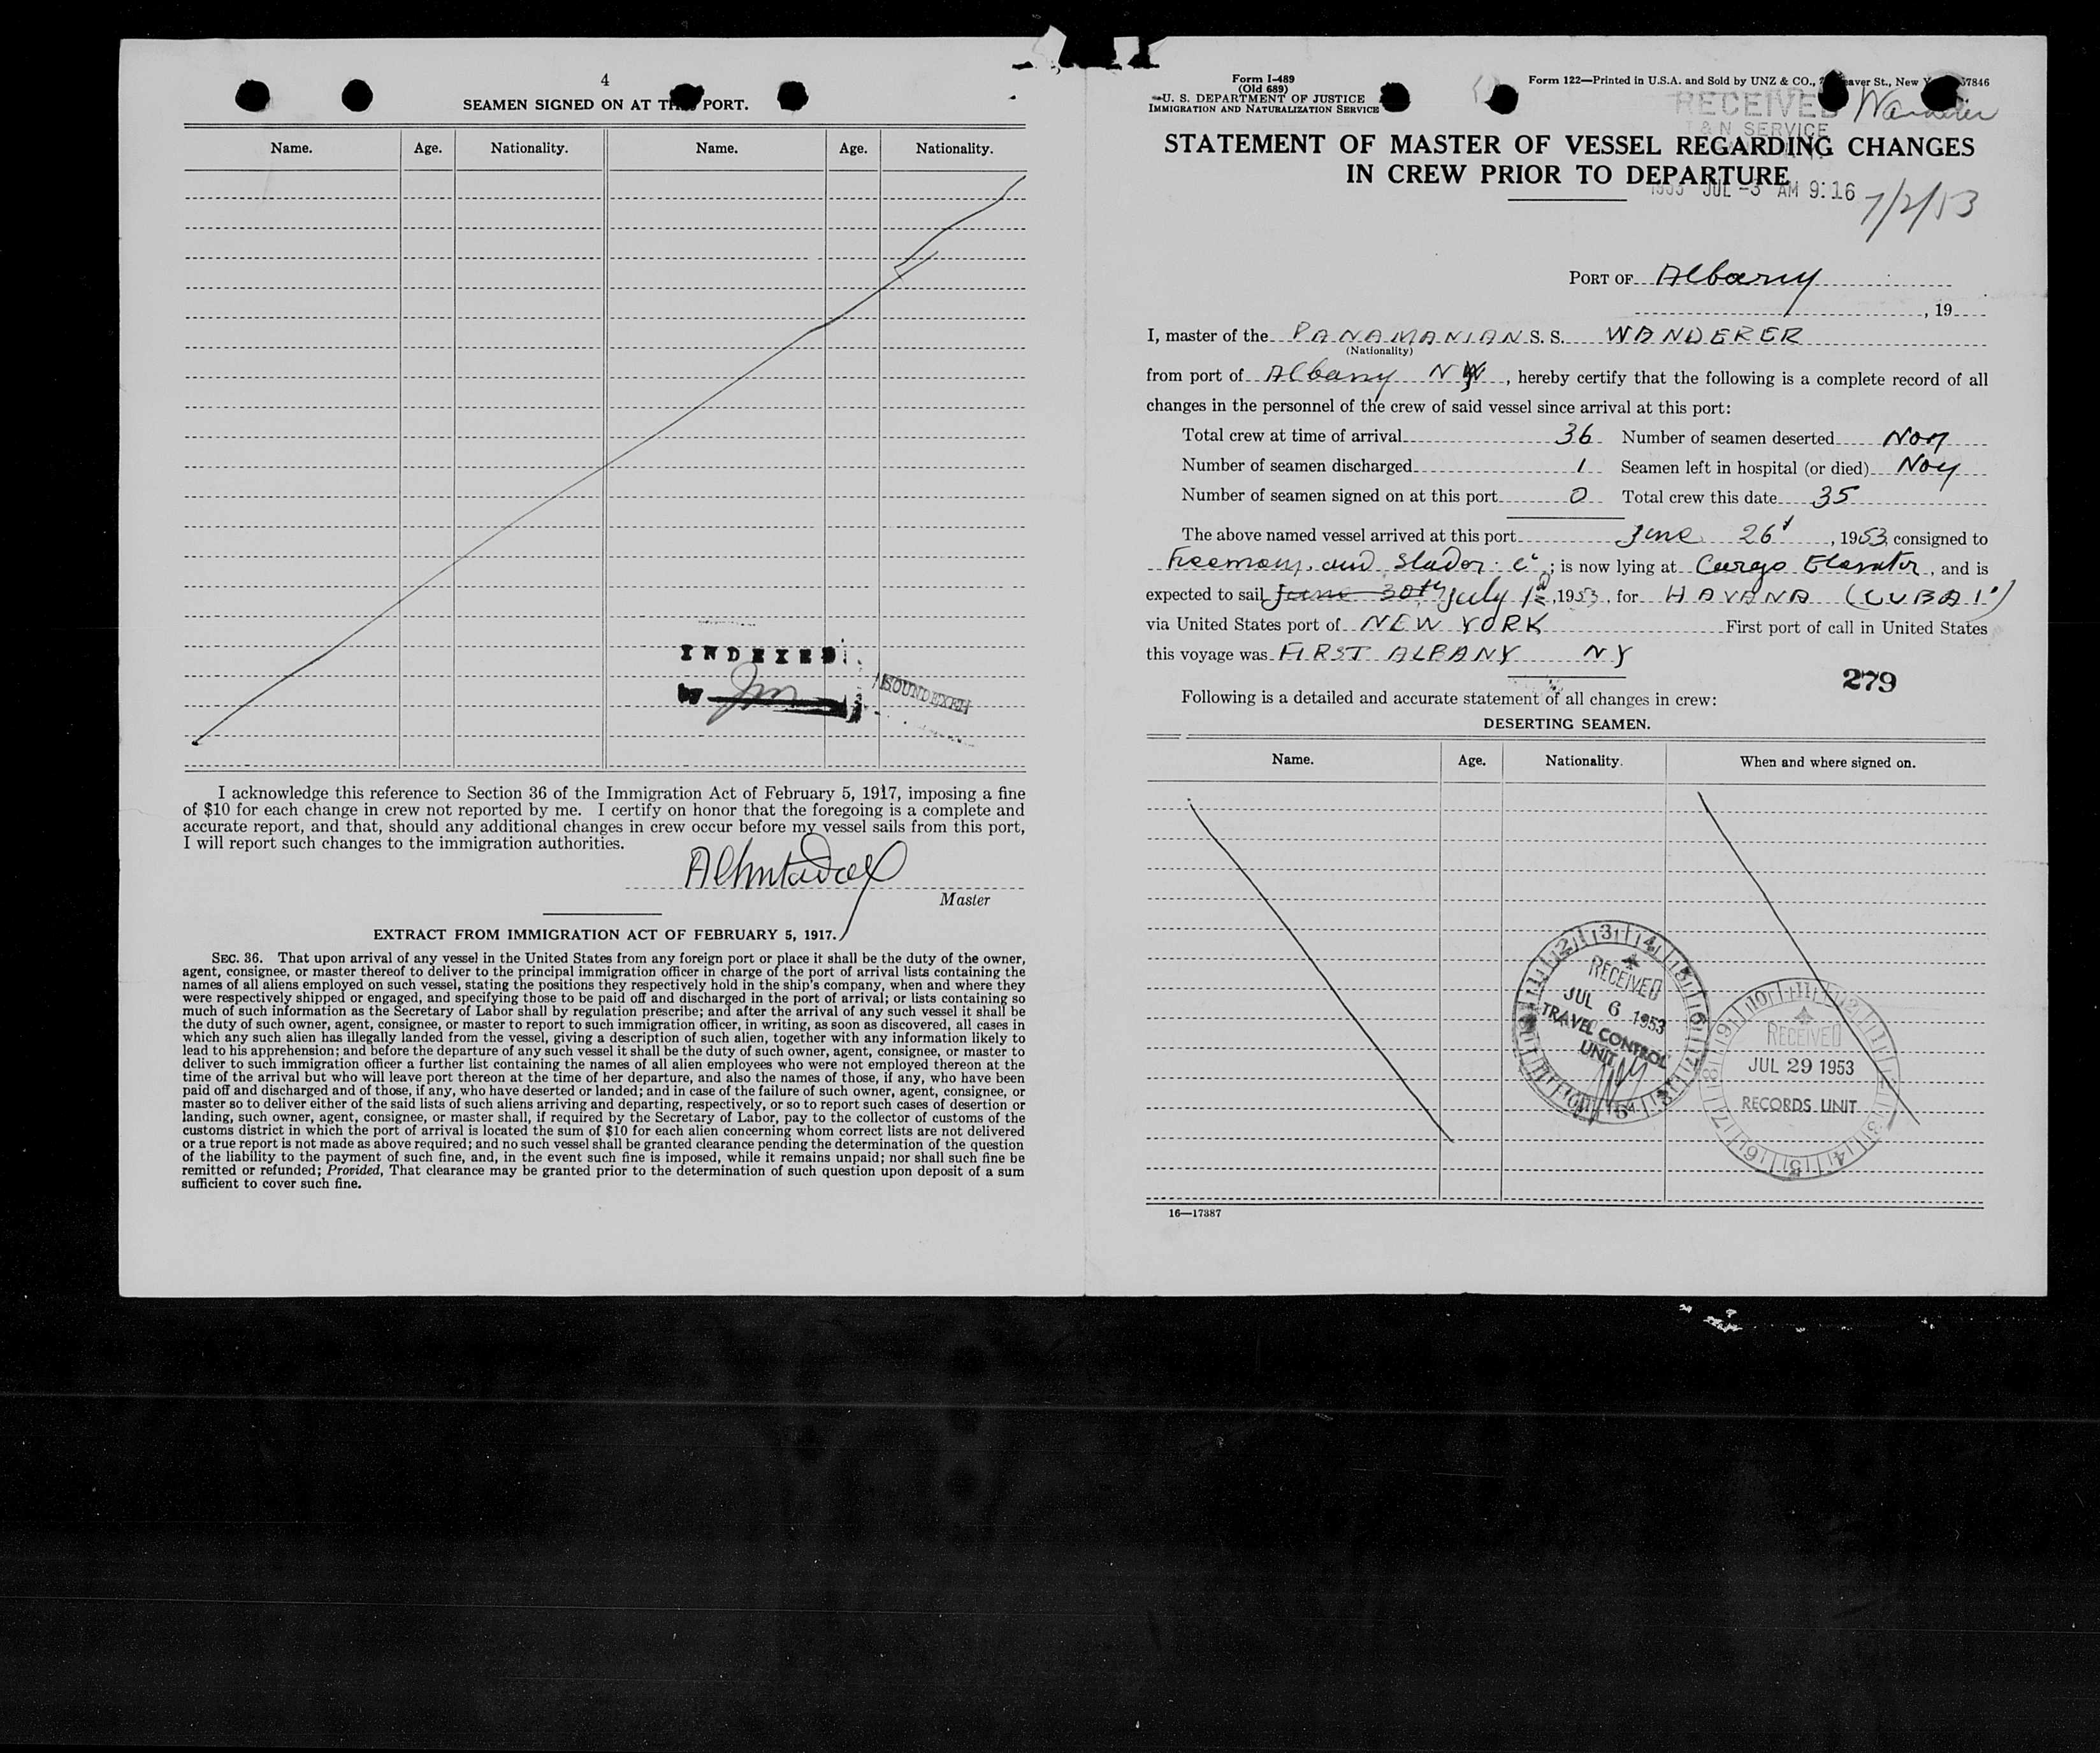 4
SEAMEN SIGNED ON AT THIS PORT.
Name. Age. Nationality. Name. Age. Nationality.
INDEXED
by
SOUNDEXED
I acknowledge this reference to Section 36 of the Immigration Act of February 5, 1917, imposing a fine
of $10 for each change in crew not reported by me. I certify on honor that the foregoing is a complete and
accurate report, and that, should any additional changes in crew occur before my vessel sails from this port,
I will report such changes to the immigration authorities.
Master
EXTRACT FROM IMMIGRATION ACT OF FEBRUARY 5, 1917.
SEC. 36. That upon arrival of any vessel in the United States from any foreign port or place it shall be the duty of the owner,
agent, consignee, or master thereof to deliver to the principal immigration officer in charge of the port of arrival lists containing the
names of all aliens employed on such vessel, stating the positions they respectively hold in the ship's company, when and where they
were respectively shipped or engaged, and specifying those to be paid off and discharged in the port of arrival; or lists containing so
much of such information as the Secretary of Labor shall by regulation prescribe; and after the arrival of any such vessel it shall be
the duty of such owner, agent, consignee, or master to report to such immigration officer, in writing, as soon as discovered, all cases in
which any such alien has illegally landed from the vessel, giving a description of such alien, together with any information likely to
lead to his apprehension; and before the departure of any such vessel it shall be the duty of such owner, agent, consignee, or master to
deliver to such immigration officer a further list containing the names of all alien employees who were not employed thereon at the
time of the arrival but who will leave port thereon at the time of her departure, and also the names of those, if any, who have been
paid off and discharged and of those, if any, who have deserted or landed; and in case of the failure of such owner, agent, consignee, or
master so to deliver either of the said lists of such aliens arriving and departing, respectively, or so to report such cases of desertion or
landing, such owner, agent, consignee, or master shall, if required by the Secretary of Labor, pay to the collector of customs of the
customs district in which the port of arrival is located the sum of $10 for each alien concerning whom correct lists are not delivered
or a true report is not made as above required; and no such vessel shall be granted clearance pending the determination of the question
of the liability to the payment of such fine, and, in the event such fine is imposed, while it remains unpaid; nor shall such fine be
remitted or refunded; Provided, That clearance may be granted prior to the determination of such question upon deposit of a sum
sufficient to cover such fine.
Form I-489
(Old 689)
U. S. DEPARTMENT OF JUSTICE
IMMIGRATION AND NATURALIZATION SERVICE
Form 122—Printed in U.S.A. and Sold by UNZ & CO., St., New
RECEIVED Wanderer
I & N SERVICE
STATEMENT OF MASTER OF VESSEL REGARDING CHANGES
IN CREW PRIOR TO DEPARTURE
1953 JUL -3 AM 9:16
7/2/53
PORT OF Albany
, 19
I, master of the PANAMANIAN S. S. WANDERER
(Nationality)
from port of Albany NY, hereby certify that the following is a complete record of all
changes in the personnel of the crew of said vessel since arrival at this port:
Total crew at time of arrival 36 Number of seamen deserted Non
Number of seamen discharged 1 Seamen left in hospital (or died)
Number of seamen signed on at this port 0 Total crew this date 35
The above named vessel arrived at this port June 26, 1953 consigned to
and ; is now lying at Cargo Elevator, and is
expected to sail June 30th July 1, 1953, for HAVANA (CUBA)
via United States port of NEW YORK First port of call in United States
this voyage was FIRST ALBANY NY
279
Following is a detailed and accurate statement of all changes in crew:
DESERTING SEAMEN.
Name. Age. Nationality. When and where signed on.
RECEIVED
JUL 6 1953
TRAVEL CONTROL
UNIT
RECEIVED
JUL 29 1953
RECORDS UNIT
16—17387